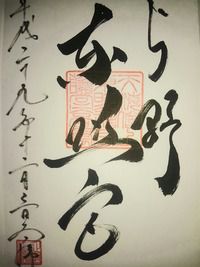 上野
東照宮
平成二十九年十二月三日